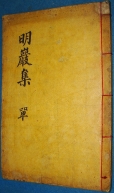 明巖集
單